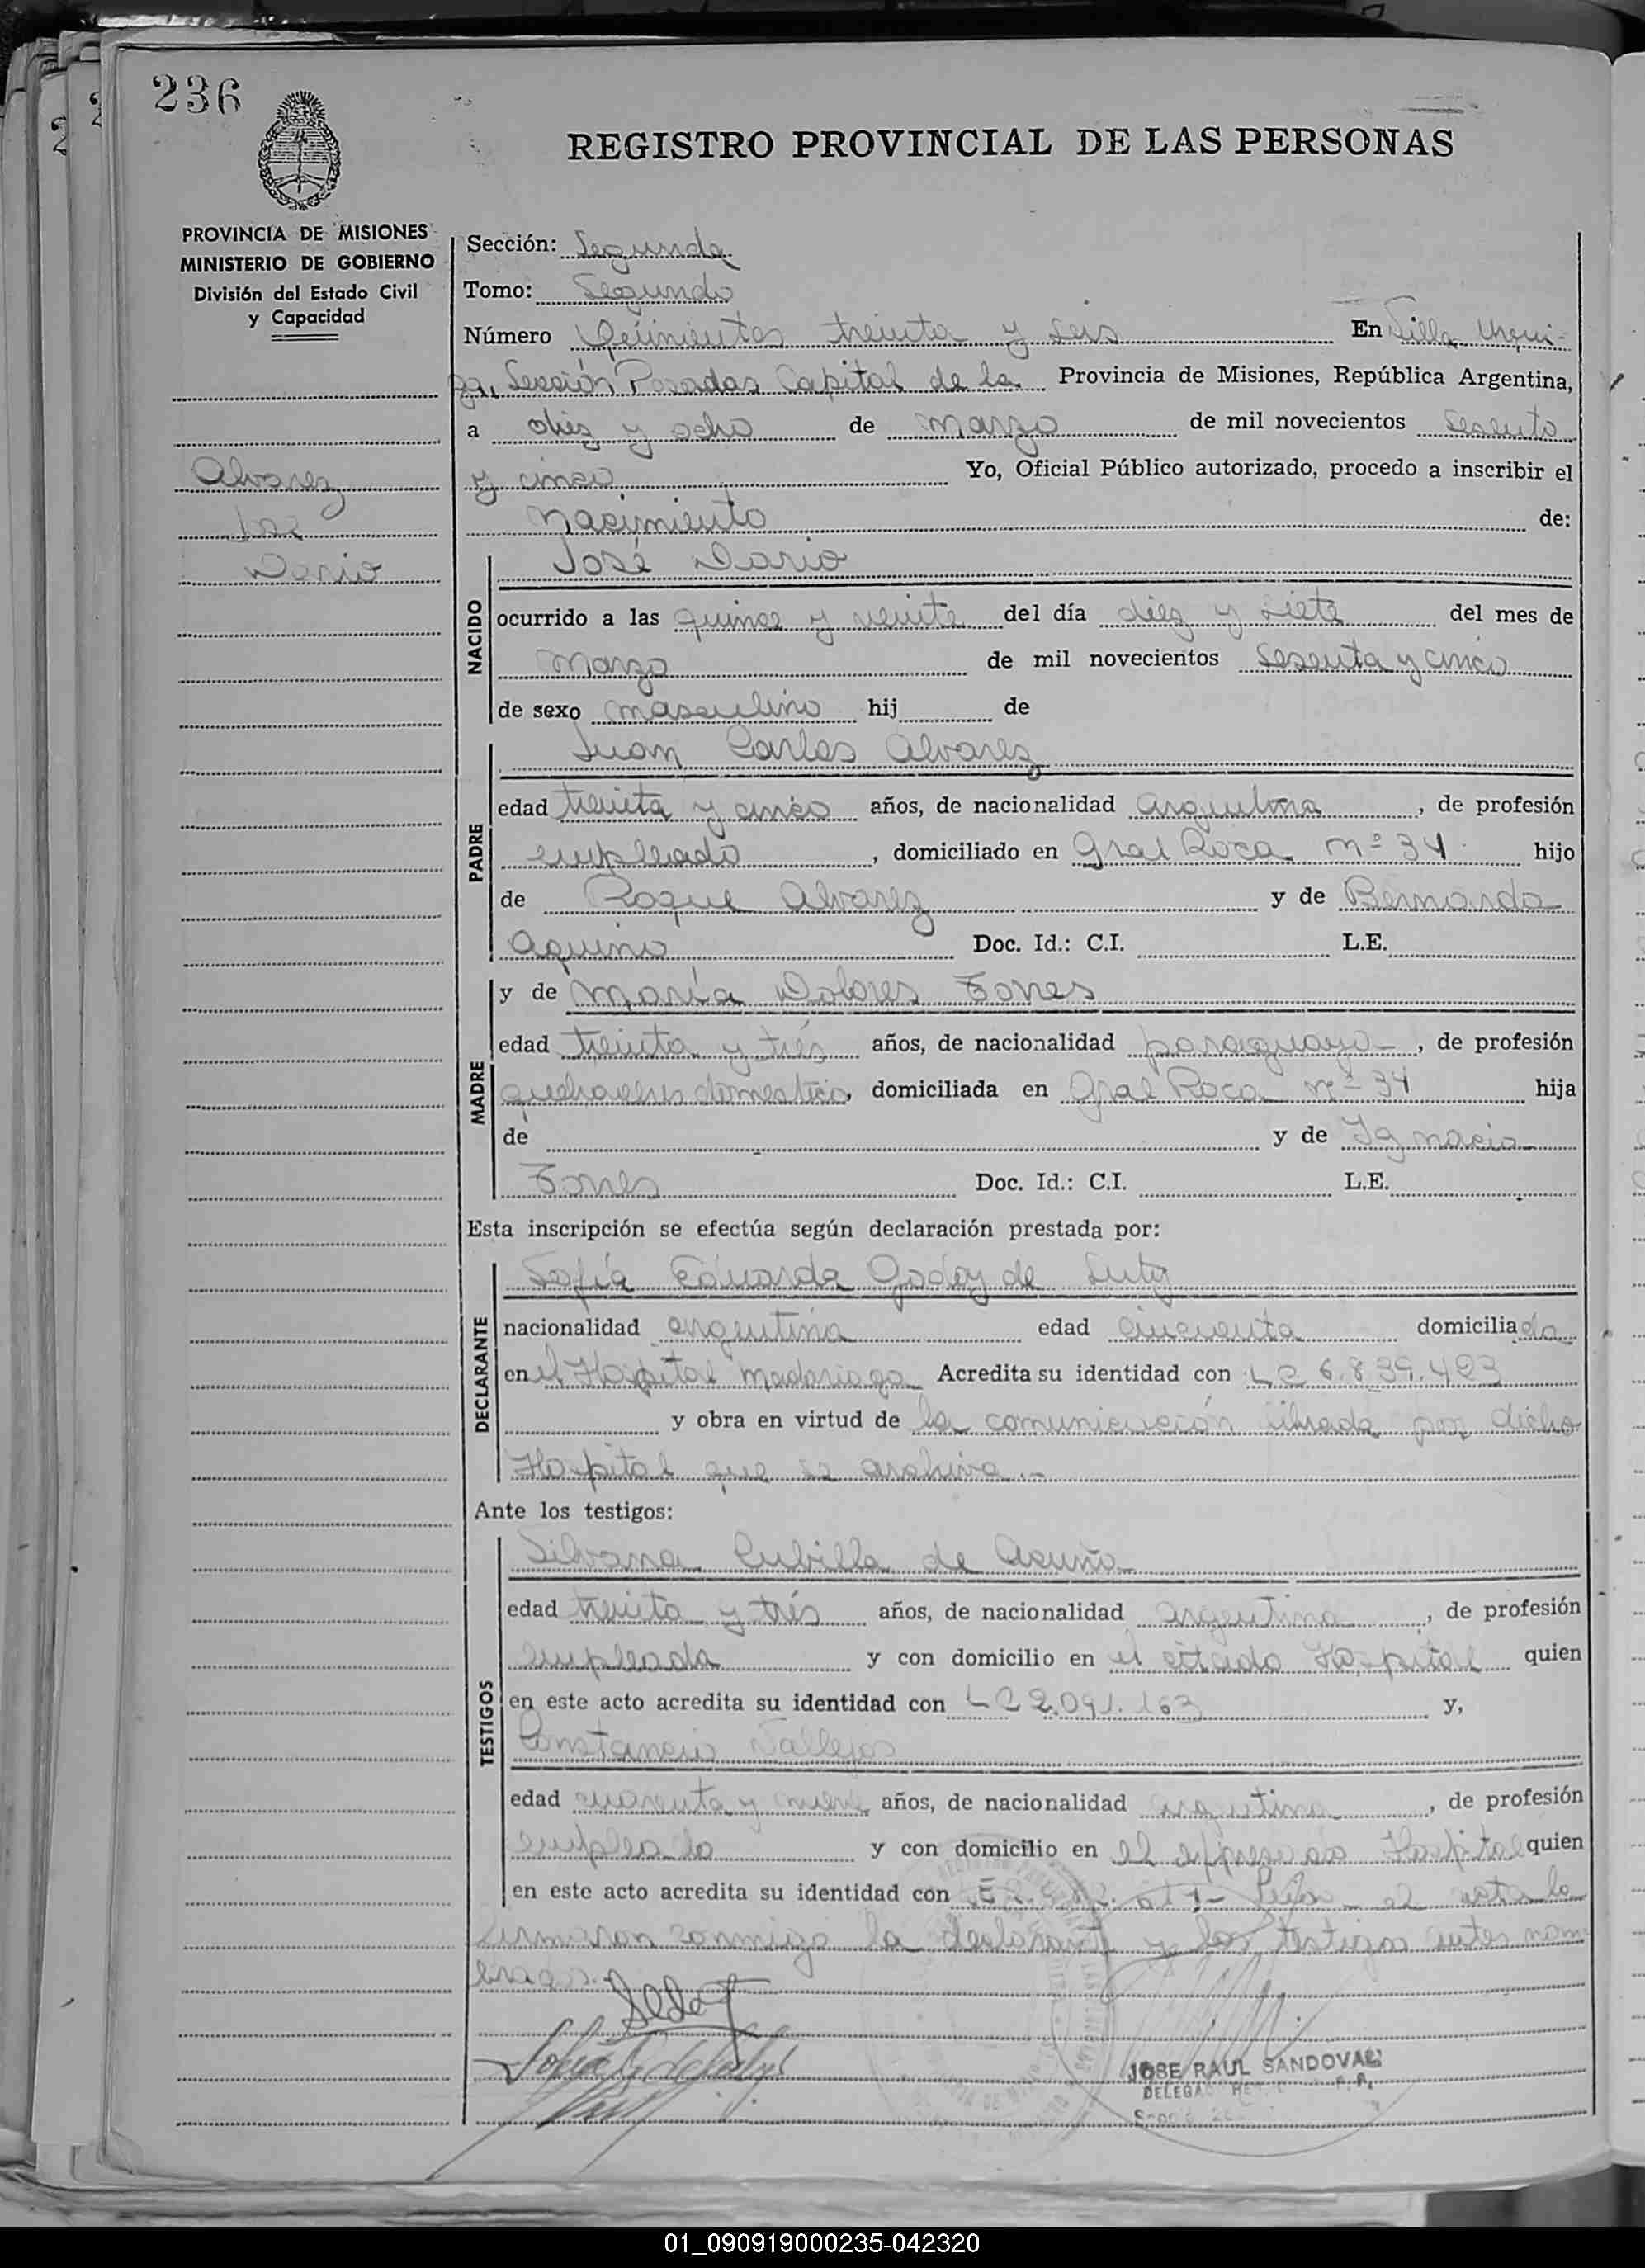 236
REGISTRO PROVINCIAL DE LAS PERSONAS
PROVINCIA DE MISIONES
MINISTERIO DE GOBIERNO
División del Estado Civil
y Capacidad
Alvarez
José
Dario
Sección: Segunda
Tomo: Segundo
Número Quinientos treinta y seis En Villa Urqui-
za, Sección Posadas Capital de la Provincia de Misiones, República Argentina,
a diez y ocho de Marzo de mil novecientos sesenta
y cinco Yo, Oficial Público autorizado, procedo a inscribir el
Nacimiento de:
NACIDO
José Dario
ocurrido a las quince y veinte del día diez y siete del mes de
Marzo de mil novecientos sesenta y cinco
de sexo masculino hij de
PADRE
Juan Carlos Alvarez
edad treinta y cinco años, de nacionalidad argentina, de profesión
empleado, domiciliado en Gral Roca nº 34 hijo
de Roque Alvarez y de Bernarda
Aquino Doc. Id.: C.I. L.E.
MADRE
y de María Dolores
edad treinta y trés años, de nacionalidad paraguaya, de profesión
quehaceres domestico, domiciliada en Gral Roca nº 34 hija
de y de Ignacia
Doc. Id.: C.I. L.E.
Esta inscripción se efectúa según declaración prestada por:
DECLARANTE
Sofía Eduarda Godoy de
nacionalidad argentina edad cincuenta domiciliada
en el Hospital Madariaga Acredita su identidad con LC 6.839.423
y obra en virtud de la comunicación librada por dicho
Hospital que se archiva.-
Ante los testigos:
TESTIGOS
Silvana Cubilla de Acuña
edad treinta y trés años, de nacionalidad argentina, de profesión
empleada y con domicilio en el citado Hospital quien
en este acto acredita su identidad con LC 2.091.163 y,
Constancio Vallejos
edad cuarenta y nueve años, de nacionalidad argentina, de profesión
empleado y con domicilio en el expresado Hospital quien
en este acto acredita su identidad con el acta la
firmaron conmigo la declarante y los testigos antes nom
brados.
JOSE RAUL SANDOVAL
01_090919000235-042320